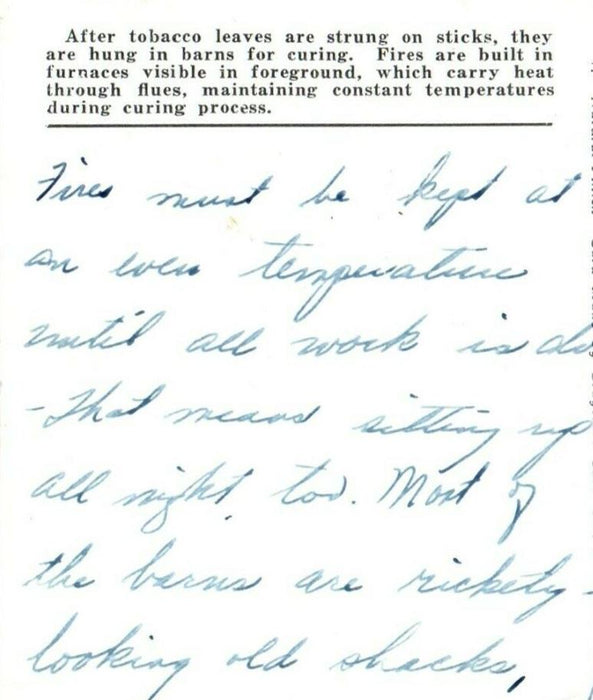 After tobacco leaves are strung on sticks, they
are hung in barns for curing. Fires are built in
furnaces visible in foreground, which carry heat
through flues, maintaining constant temperatures
during curing process.
Fires must be kept at
an even temperature
until all work is do
- That means sitting up
all night, too. Most of
the barns are rickety-
looking old shacks,